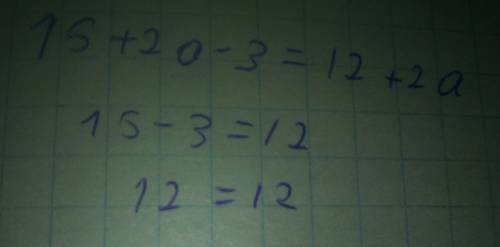 15+2a-3=12+2a
15-3=12
12=12